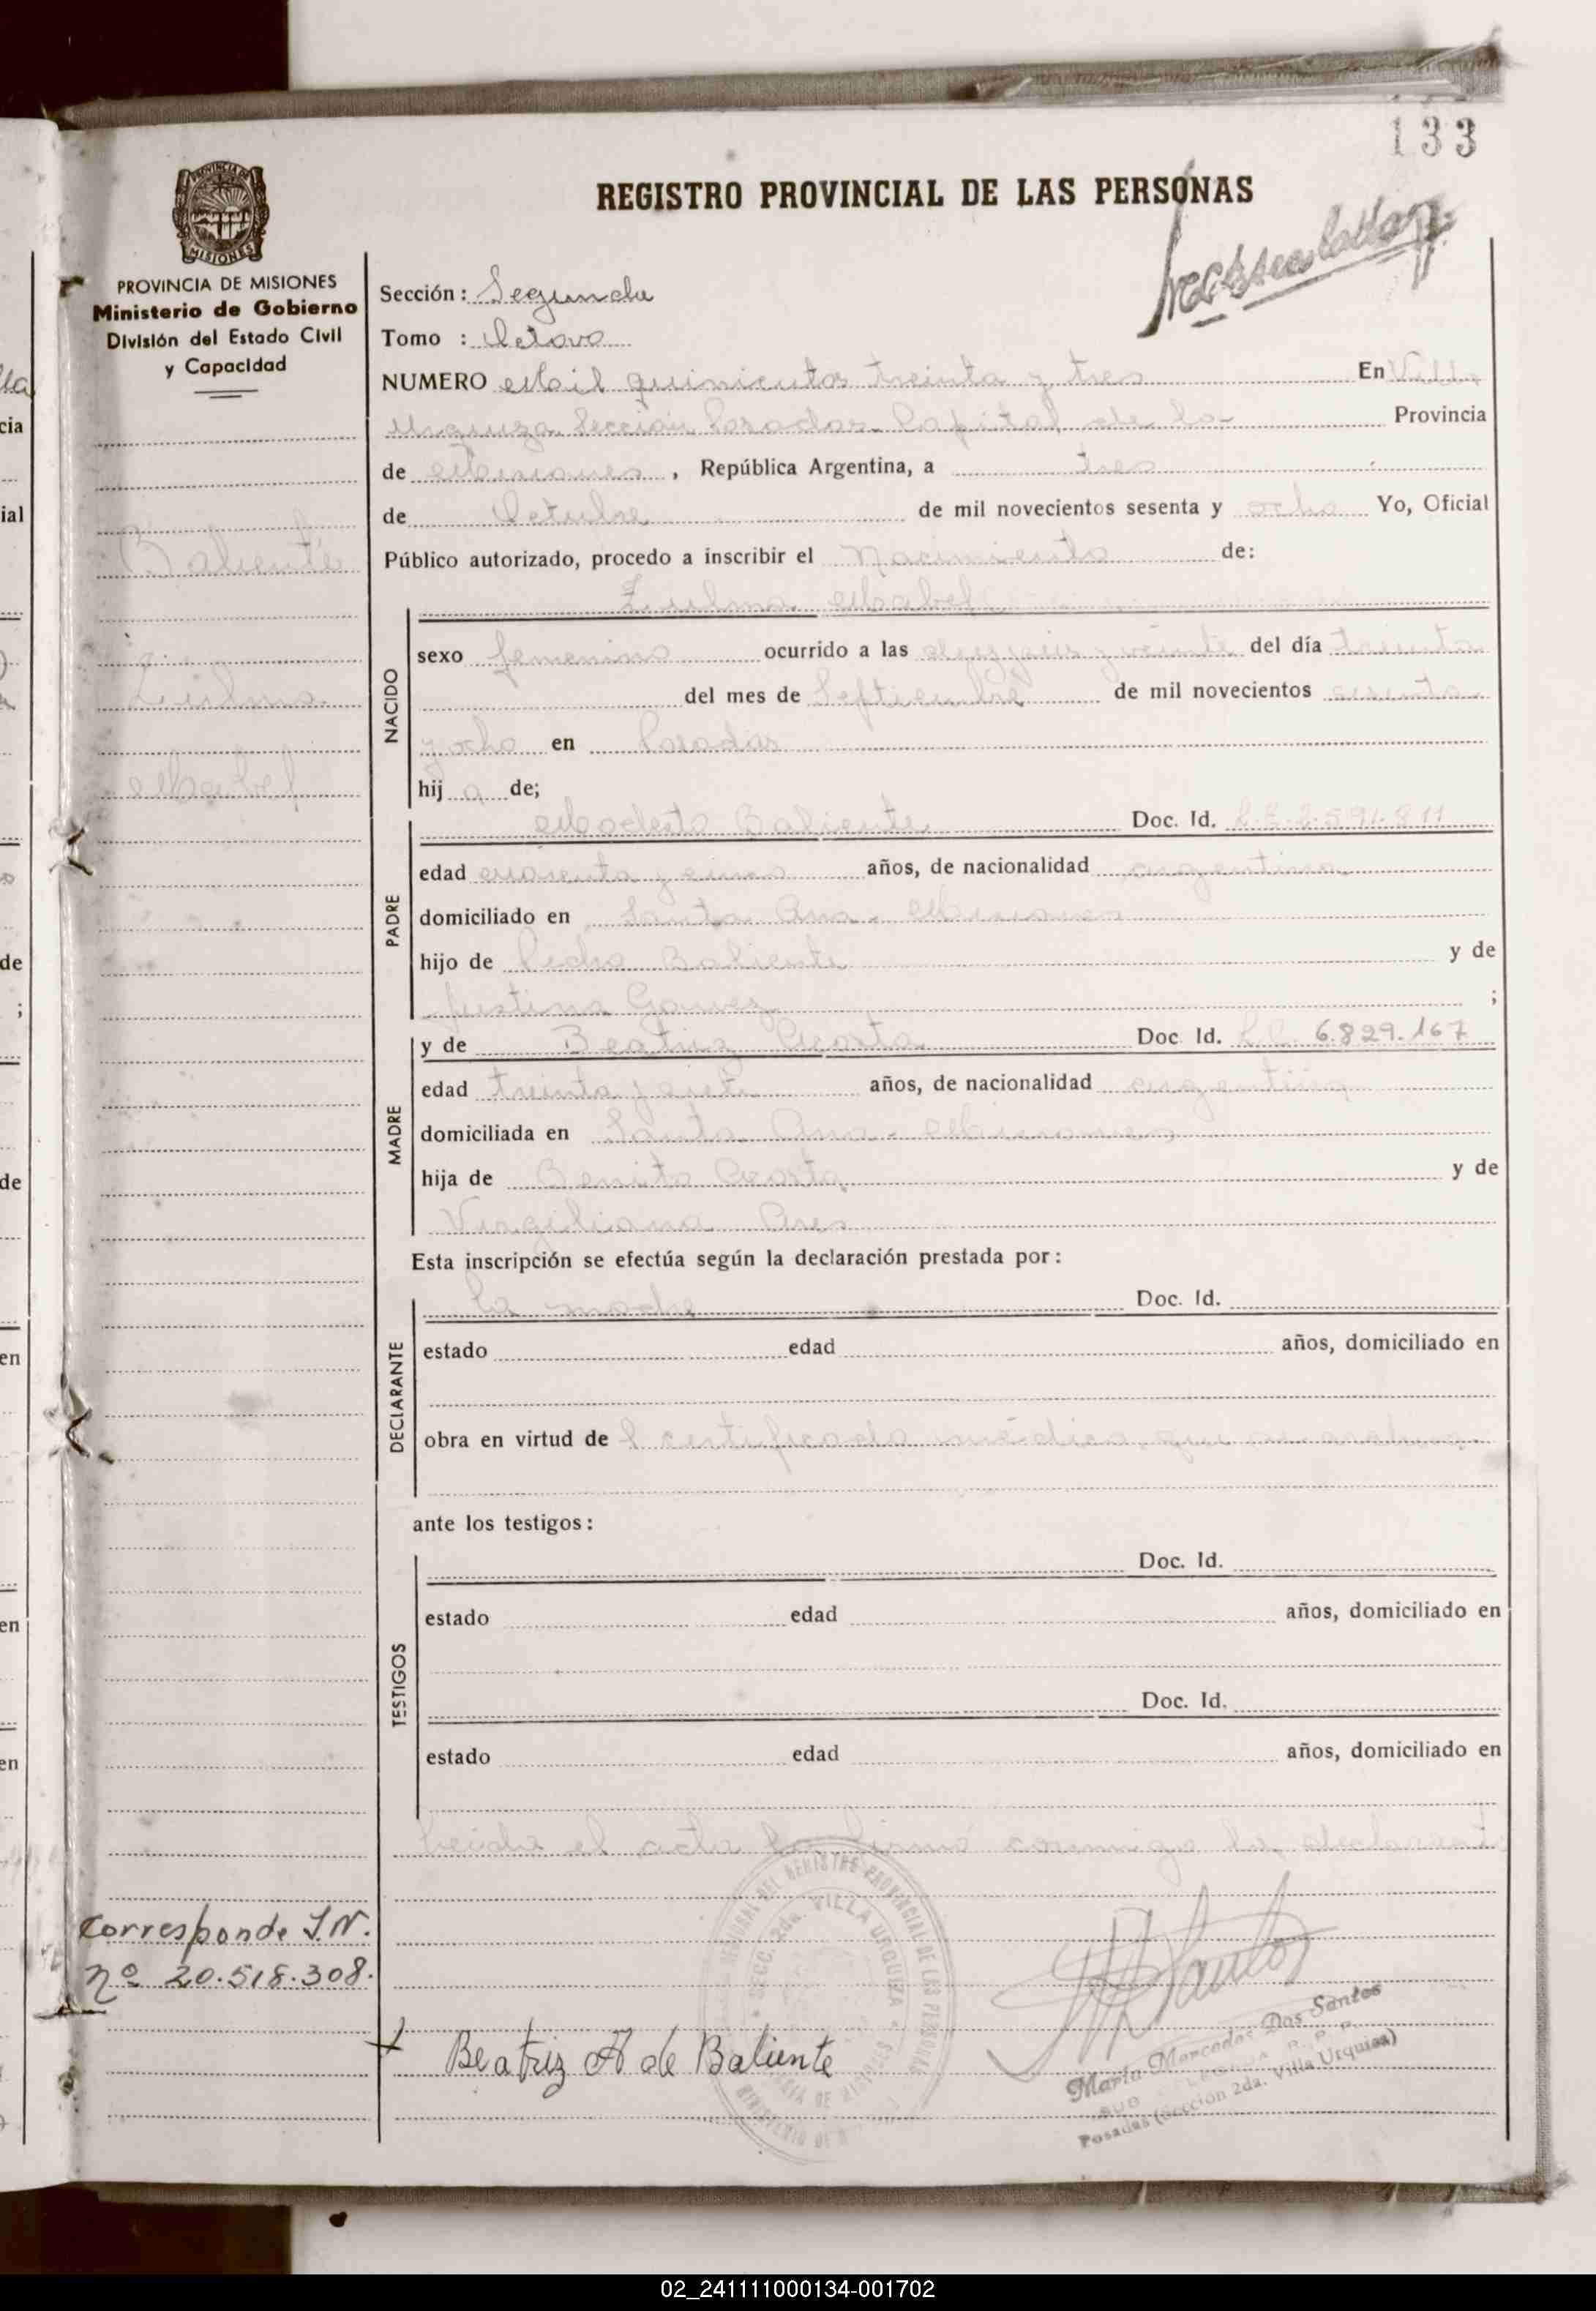 133
REGISTRO PROVINCIAL DE LAS PERSONAS
PROVINCIA DE MISIONES
MISIONES
PROVINCIA DE MISIONES
Ministerio de Gobierno
División del Estado Civil
y Capacidad
Baliente
Zulma
Mabel
Corresponde I.N.
nº 20.518.308.
Sección: Segunda
Tomo : Octavo
NUMERO Mil quinientos treinta y tres En Villa
Urquiza Sección Posadas Capital de la Provincia
de Misiones, República Argentina, a tres
de Octubre de mil novecientos sesenta y ocho Yo, Oficial
Público autorizado, procedo a inscribir el Nacimiento de:
Zulma Mabel
NACIDO
sexo femenino ocurrido a las y veinte del día treinta
del mes de Septiembre de mil novecientos sesenta
y ocho en Posadas
hij a de;
PADRE
Modesto Baliente Doc. Id. L.E. 2.591.811
edad cuarenta y cinco años, de nacionalidad argentina
domiciliado en Santa Ana - Misiones
hijo de Pedro Baliente y de
Justina Gomez ;
MADRE
y de Beatriz Acosta Doc Id. L.C. 6.829.167
edad treinta y siete años, de nacionalidad argentina
domiciliada en Santa Ana - Misiones
hija de Benito Acosta y de
Virgiliana
Esta inscripción se efectúa según la declaración prestada por:
DECLARANTE
La madre Doc. Id.
estado edad años, domiciliado en
obra en virtud de l certificado médico que
ante los testigos:
TESTIGOS
Doc. Id.
estado edad años, domiciliado en
Doc. Id.
estado edad años, domiciliado en
Leida el acta la firmó conmigo la declarante
SECC. 2da. VILLA URQUIZA
REGISTRO PROVINCIAL DE LAS PERSONAS
Beatriz A de Baliente
Maria Mercedes Dos Santos
Posadas (Sección 2da. Villa Urquiza)
02_241111000134-001702